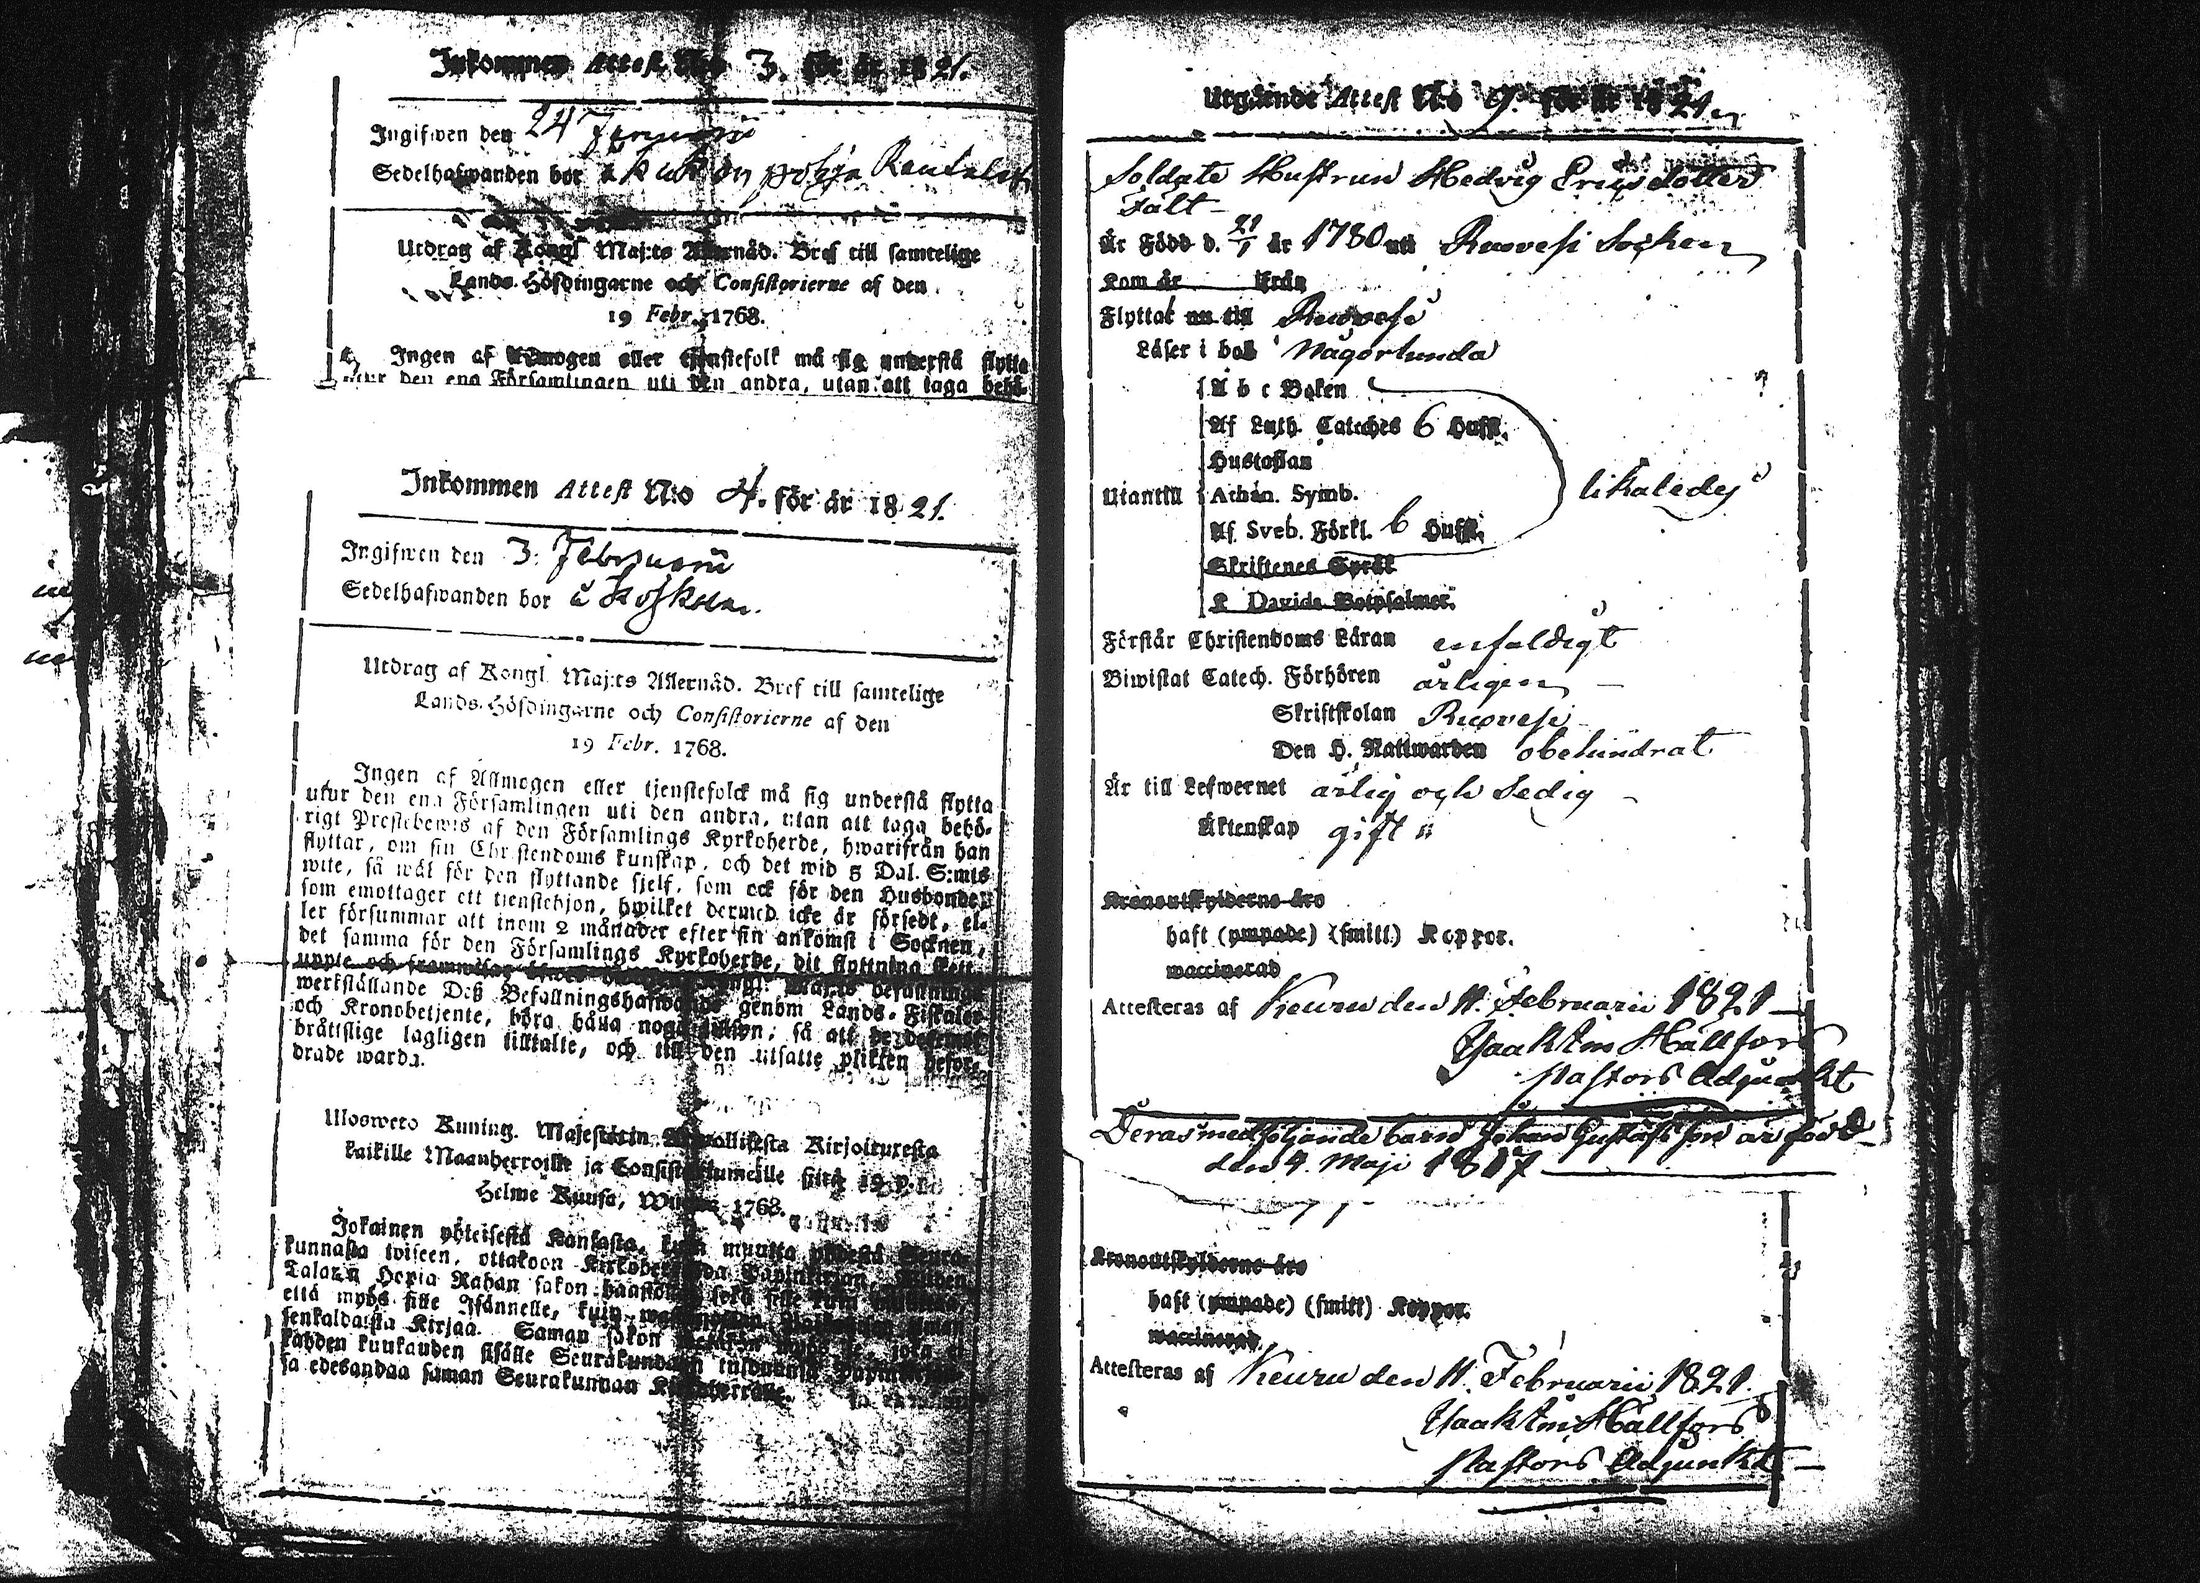 Inkommen Attest N:o 3. för år 1821.
Ingifwen den 24
Sedelhafwanden bor
Utdrag af Kongl. Maj:ts Allernåd. Bref till samtelige
Lands-Höfdingarne och Consistorierne af den
19 Febr. 1768.
Ingen af Allmogen eller tjenstefolk må sig understå flytta
utur den ena Församlingen uti den andra, utan att taga behö-
Inkommen Attest N:o 4. för år 1821.
Ingifwen den 3. Februarii
Sedelhafwanden bor å Koskela.
Utdrag af Kongl. Maj:ts Allernåd. Bref till samtelige
Lands-Höfdingarne och Consistorierne af den
19 Febr. 1768.
Ingen af Allmogen eller tjenstefolck må sig understå flytta
utur den ena Församlingen uti den andra, utan att taga behö-
rigt Prestebewis af den Församlings Kyrkoherde, hwarifrån han
flyttar, om sin Christendoms kunskap, och det wid 5 Dal. S:mts
wite, så wäl för den flyttande sjelf, som ock för den Husbonde,
som emottager ett tjenstehjon, hwilket dermed icke är försedt, el-
ler försummar att inom 2 månader efter sin ankomst i Socknen,
det samma för den Församlings Kyrkoherde, dit flyttning skett,
uppte och framwisa
werkställande Deß Befallningshafwande genom Lands-Fiskaler
och Kronobetjente, böra hålla noga tillsyn; så att de
bråttslige lagligen tilltalte, och till den utsatte plikten befor-
drade warda.
Ulosweto Kuning. Majestetin Kirjoituxesta
kaikille Maanherroille ja Consistoriumeille siitä 19 p.
Helme Kuusa, Wuonna 1768.
Jokainen yhteisestä Kansasta, kuin muutta yhdestä Seura-
kunnasta toiseen, ottakoon Papinkirjan,
Talarin Hopia Rahan sakon
että myös sille Isännelle, kuin
senkaldaista Kirjaa. Saman sakon
kahden kuukauden sisälle Seurakundaan
ja edesandaa saman Seurakunnan Kirkoherralle.
Utgående Attest N:o 9. för år 1821.
Soldate Hustrun Hedvig Ericsdotter
Fält
Är Född d. 21/1 år 1780 uti Ruovesi Socken
Kom år från
Flyttat nu till Ruovesi
Läser i bok någorlunda
A b c Boken
Af Luth. Cateches 6 Hufst.
Hustaflan
Utantill Athan. Symb. likaledes
Af Sveb. Förkl. 6 Hufst.
Skriftenes Språk
K Davids Botpsalmer.
Förstår Christendoms Läran enfaldigt
Biwistat Catech. Förhören årligen
Skriftskolan Ruovesi
Den H. Nattwarden obehindrat
Är till Lefwernet ärlig och sedig
Äktenskap gift
Kronoutskylderne äro
haft (ympade) (smitt) Koppor.
waccinerad
Attesteras af Keuru den 11. Februarii 1821
Hällfors
Pastors Adjunkt
Deras medföljande barn Johan Gustafsson är född
den 4. Maji 1817
Kronoutskylderne äro
haft (ympade) (smitt) Koppor.
waccinerad
Attesteras af Keuru den 11. Februarii 1821.
Hällfors
Pastors Adjunkt